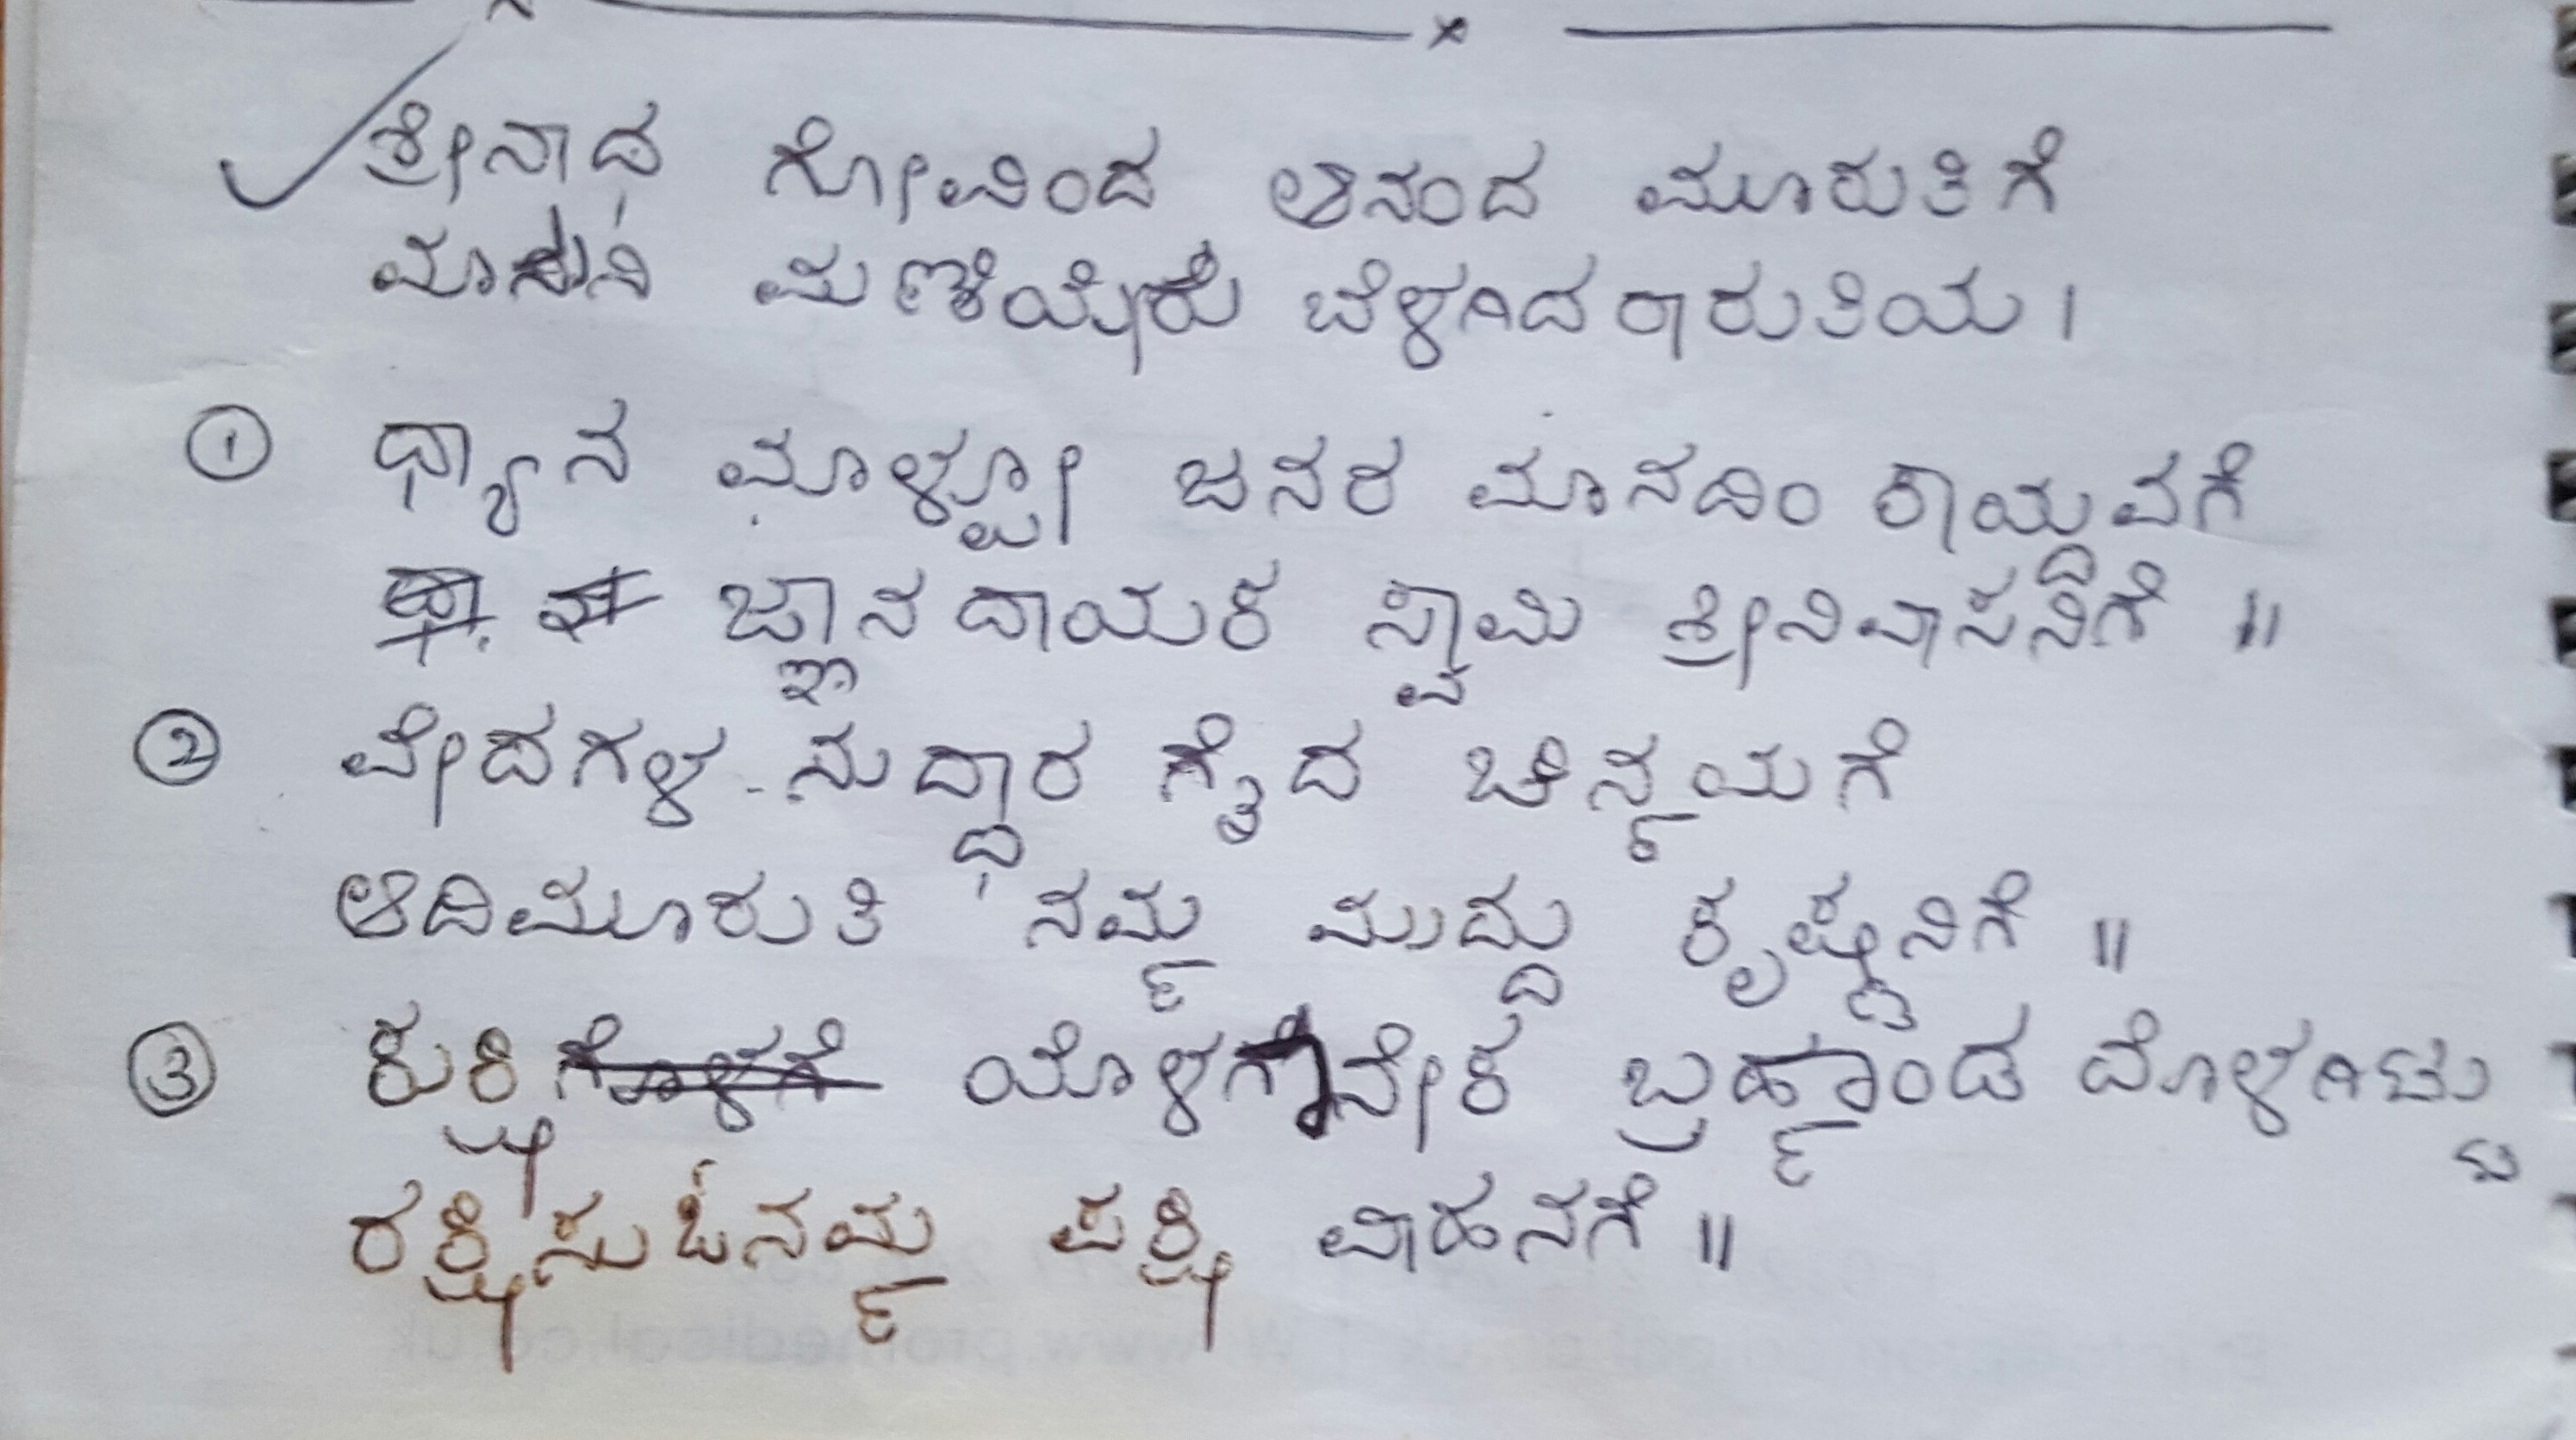 ಶ್ರೀನಾಥ ಗೋವಿಂದ ಆನಂದ ಮೂರುತಿಗೆ
ಮಾನಿನಿ ಮಣಿಯೆರು ಬೆಳಗಿದರಾರುತಿಯ ।
① ಧ್ಯಾನ ಮಾಳ್ಪೋ ಜನರ ಮಾನದಿಂ ಕಾಯ್ದವಗೆ
ಜ್ಞಾನ ದಾಯಕ ಸ್ವಾಮಿ ಶ್ರೀನಿವಾಸನಿಗೆ ॥
② ವೇದಗಳ - ನುದ್ಧಾರ ಗೈದ ಚಿನ್ಮಯಗೆ
ಆದಿಮೂರುತಿ ನಮ್ಮ ಮುದ್ದು ಕೃಷ್ಣನಿಗೆ ॥
③ ಕುಕ್ಷಿ ಯೊಳಗನೇಕ ಬ್ರಹ್ಮಾಂಡ ವೊಳಗಿಟ್ಟು
ರಕ್ಷಿಸುಓನಮ್ಮ ಪಕ್ಷಿ ವಾಹನಗೆ ॥